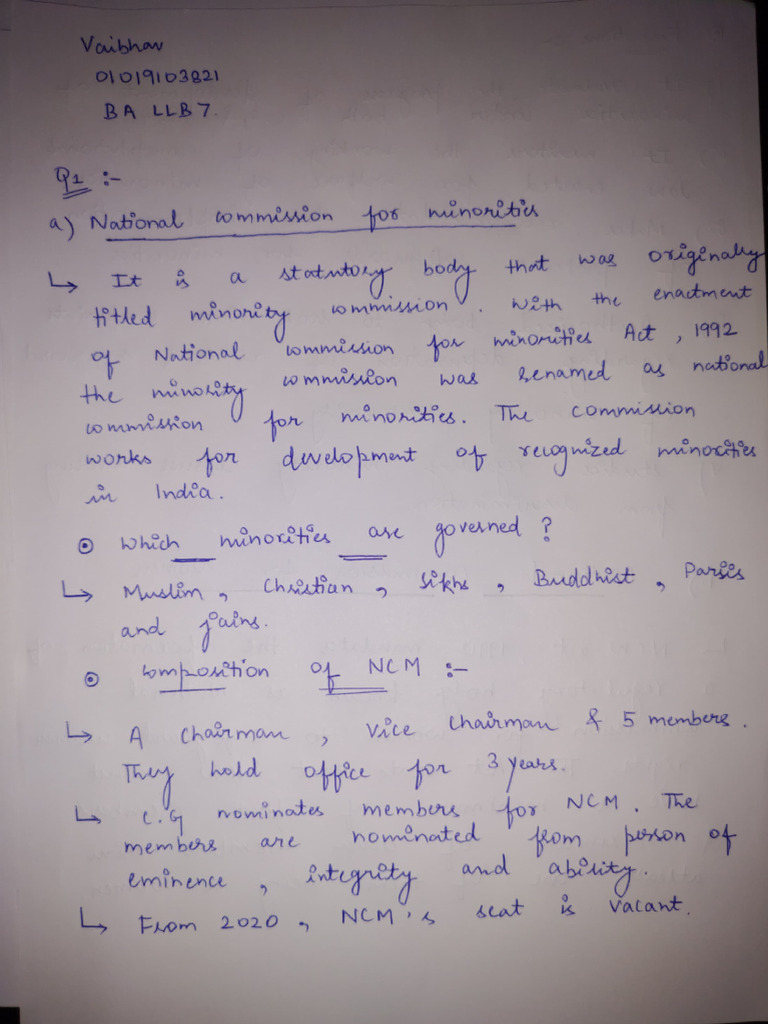 Vaibhav
01019103821
BA LLB 7.
Q1 :-
a) National commission for minorities
↳ It is a statutory body that was originally
titled minority commission. With the enactment
of National commission for minorities Act, 1992
the minority commission was renamed as national
commission for minorities. The commission
works for development of recognized minorities
in India.
⊙ Which minorities are governed?
↳ Muslim, Christian, Sikhs, Buddhist, Parsis
and jains.
⊙ Composition of NCM :-
↳ A Chairman, Vice Chairman & 5 members.
They hold office for 3 years.
↳ C.G nominates members for NCM. The
members are nominated from person of
eminence, integrity and ability.
↳ From 2020, NCM's seat is vacant.